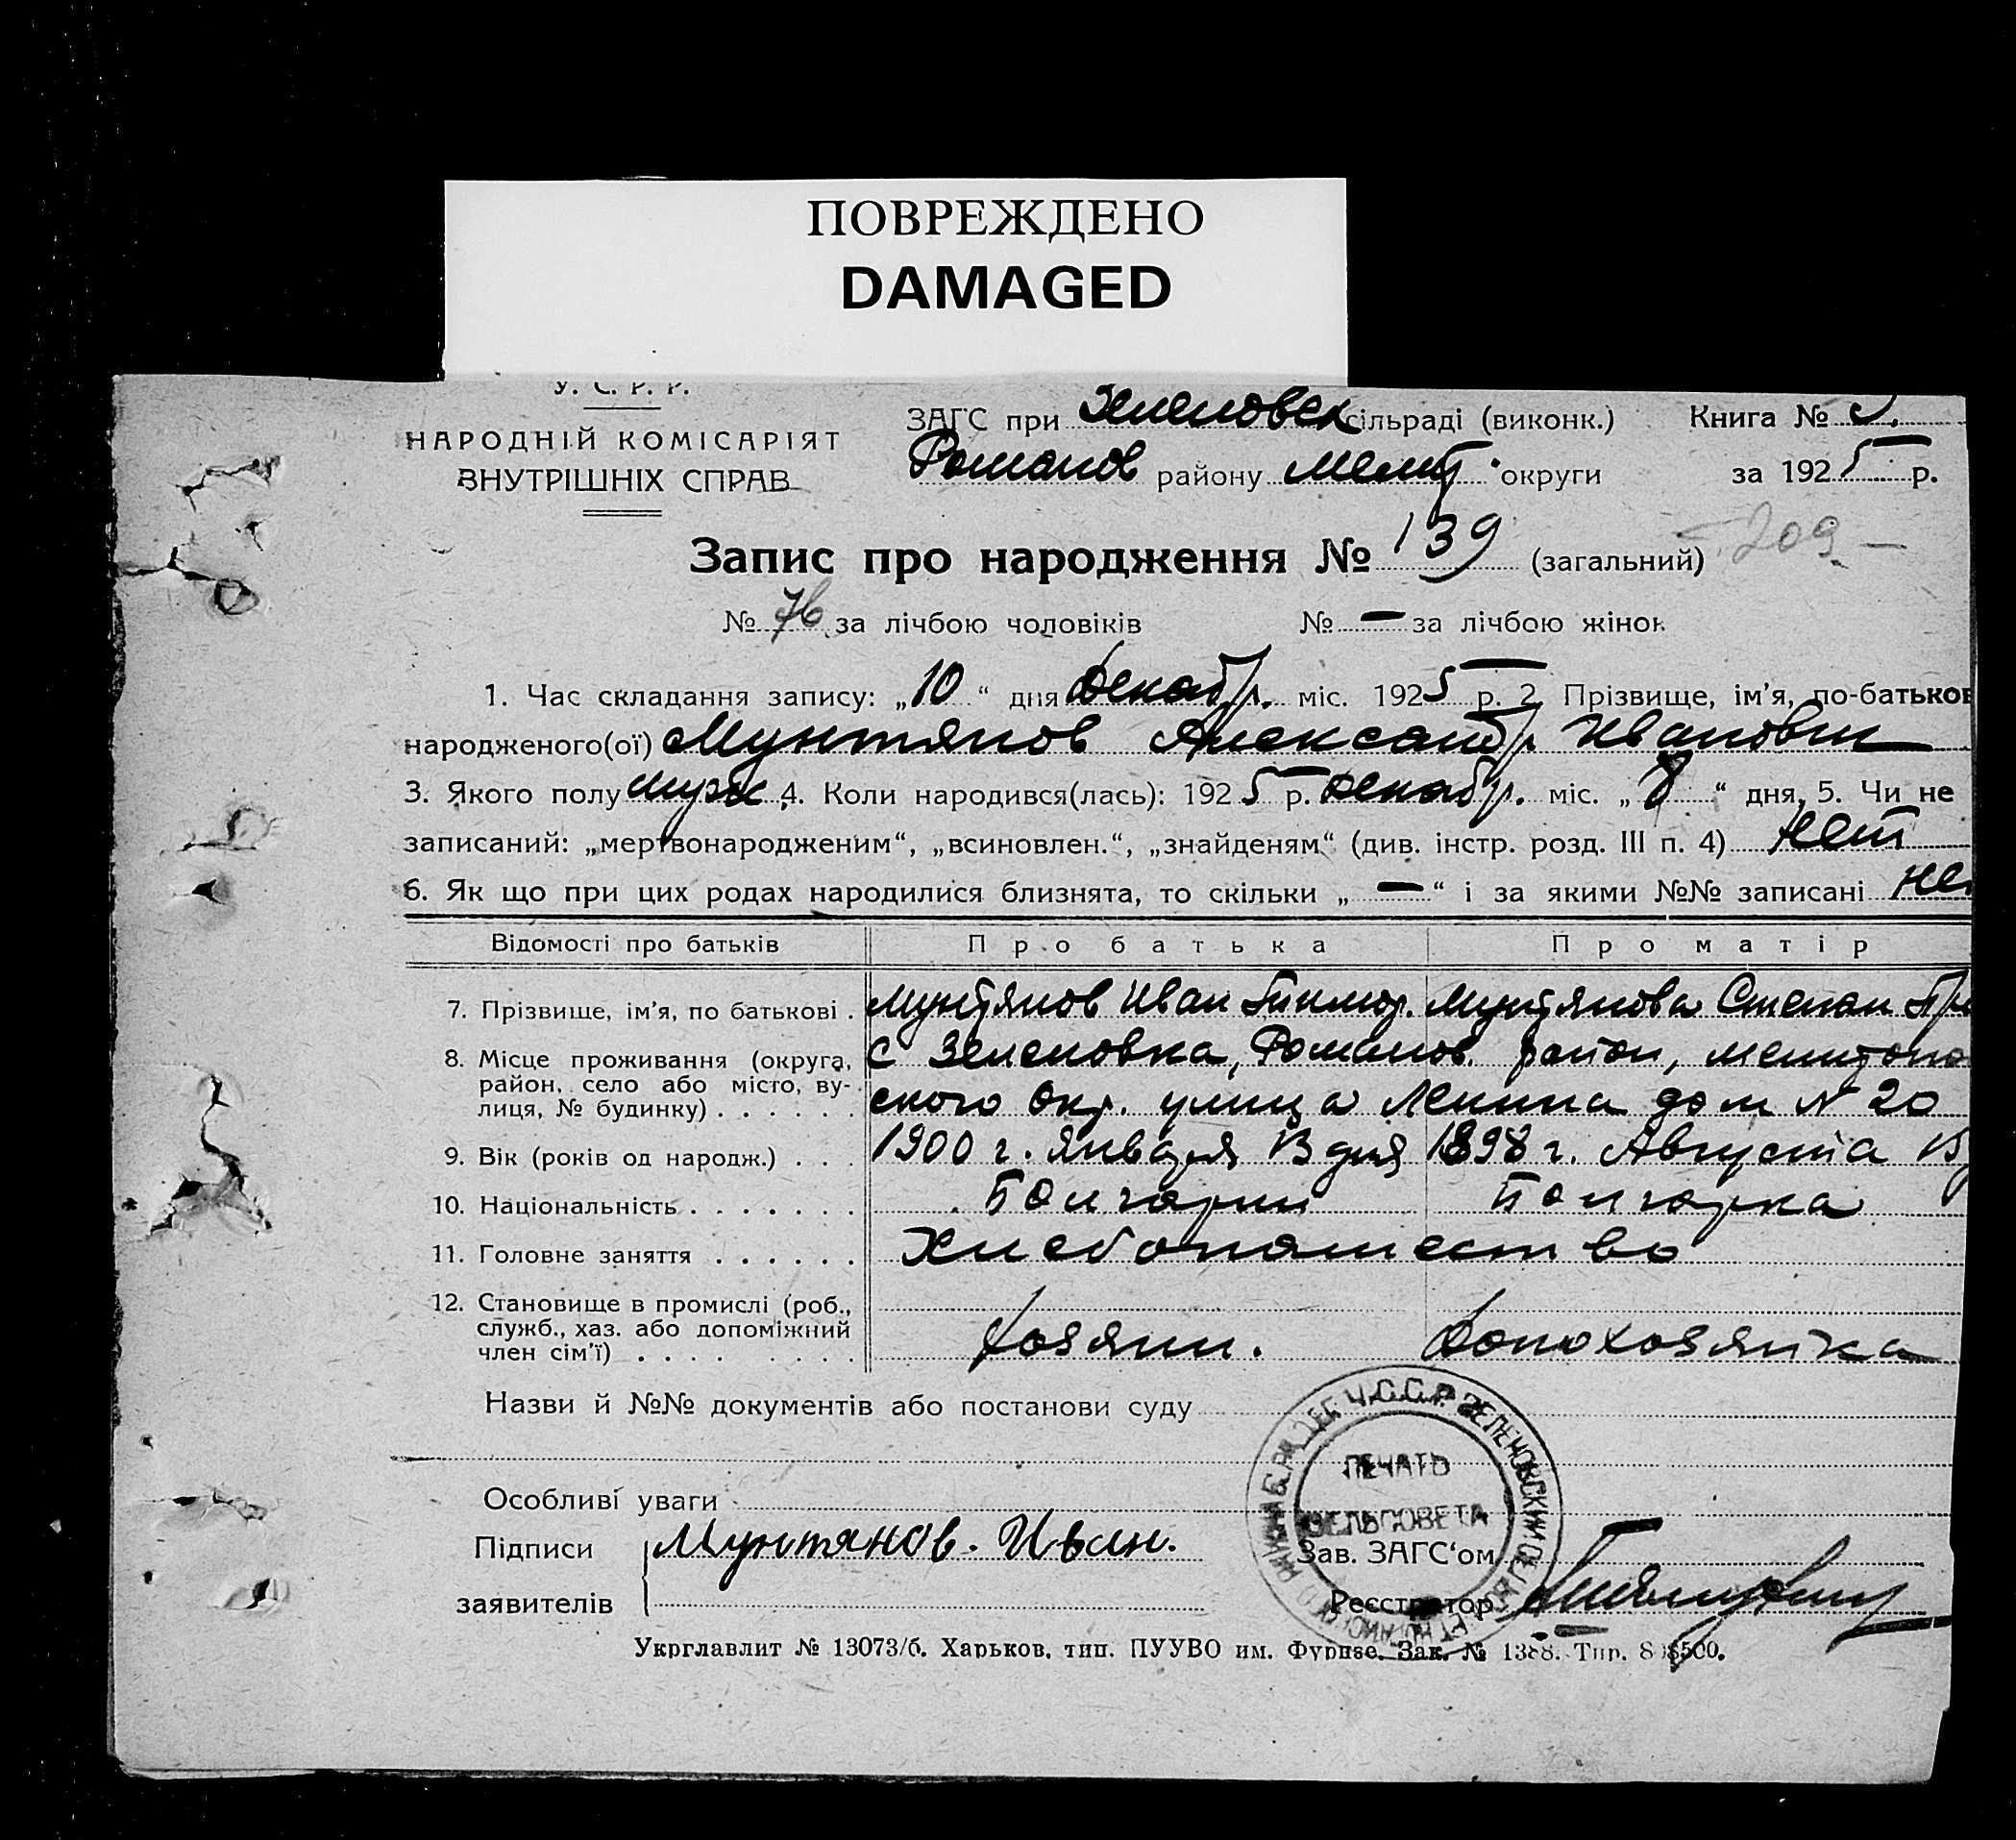 ПОВРЕЖДЕНО
DAMAGED
У. С. Р. Р.
НАРОДНІЙ КОМІСАРІЯТ
ВНУТРІШНІХ СПРАВ
ЗАГС при Зеленовск сільраді (виконк.) Книга №
Романов району Мелит. округи за 1925 р.
Запис про народження № 139 (загальний) 209 —
№ 76 за лічбою чоловіків № — за лічбою жінок
1. Час складання запису: „10“ дня Декабр. міс. 1925 р. 2. Прізвище, ім'я, по-батьков
народженого(ої) Мунтянов Александр Иванович
3. Якого полу муж 4. Коли народився(лась): 1925 р. Декабр. міс. „8“ дня, 5. Чи не
записаний: „мертвонародженим“, „всиновлен.“, „знайденям“ (див. інстр. розд. III п. 4) нет
6. Як що при цих родах народилися близнята, то скільки „—“ і за якими №№ записані
Відомості про батьків Про батька Про матір
7. Прізвище, ім'я, по батькові . Мунтянов Иван Мунтянова Степан
8. Місце проживання (округа, район, село або місто, ву-лиця, № будинку) . . . . . . с Зеленовка, Романов. район, Мелитопо
ского Окр. улица Ленина дом № 20
9. Вік (років од народж.) . . . 1900 г. Января 13 дня 1898 г. Августа
10. Національність . . . . . . . Болгарин Болгарка
11. Головне заняття . . . . . . Хлебопашество
12. Становище в промислі (роб., служб., хаз. або допоміжний член сім'ї) . . . . . . . . Хозяин. Домохозяйка
Назви й №№ документів або постанови суду
Особливі уваги
ПЕЧАТЬ
СЕЛЬСОВЕТА
Підписи Мунтянов. Иван. Зав. ЗАГС'ом
заявителів Реєстратор
Укрглавлит № 13073/б. Харьков, тип. ПУУВО им. Фрунзе. Зак. № 1388. Тир.